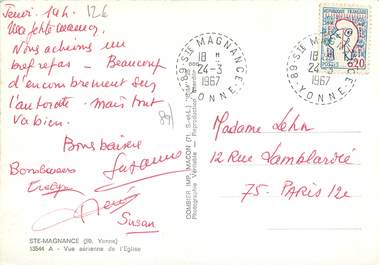 Jeudi, 14h. 126
Ma petite maman,
Nous achevons un
bref repas - Beaucoup
d'encombrement sur
l'autoroute - mais tout
va bien. 89/
Bons baisers
Suzanne
Bons baisers
Evelyne
René
Susan
STE-MAGNANCE (89. Yonne)
13544 A - Vue aérienne de l'Eglise
COMBIER IMP. MACON (S.-et-L.)
Photographie Véritable - Reproduction
89 STE MAGNANCE
18 H
24-3
1967
YONNE
89 STE MAGNANCE
18 H
24-3
1967
YONNE
REPUBLIQUE FRANCAISE
POSTES
0,20
Madame Lehn
12 Rue Lamblardie
75 - PARIS 12e